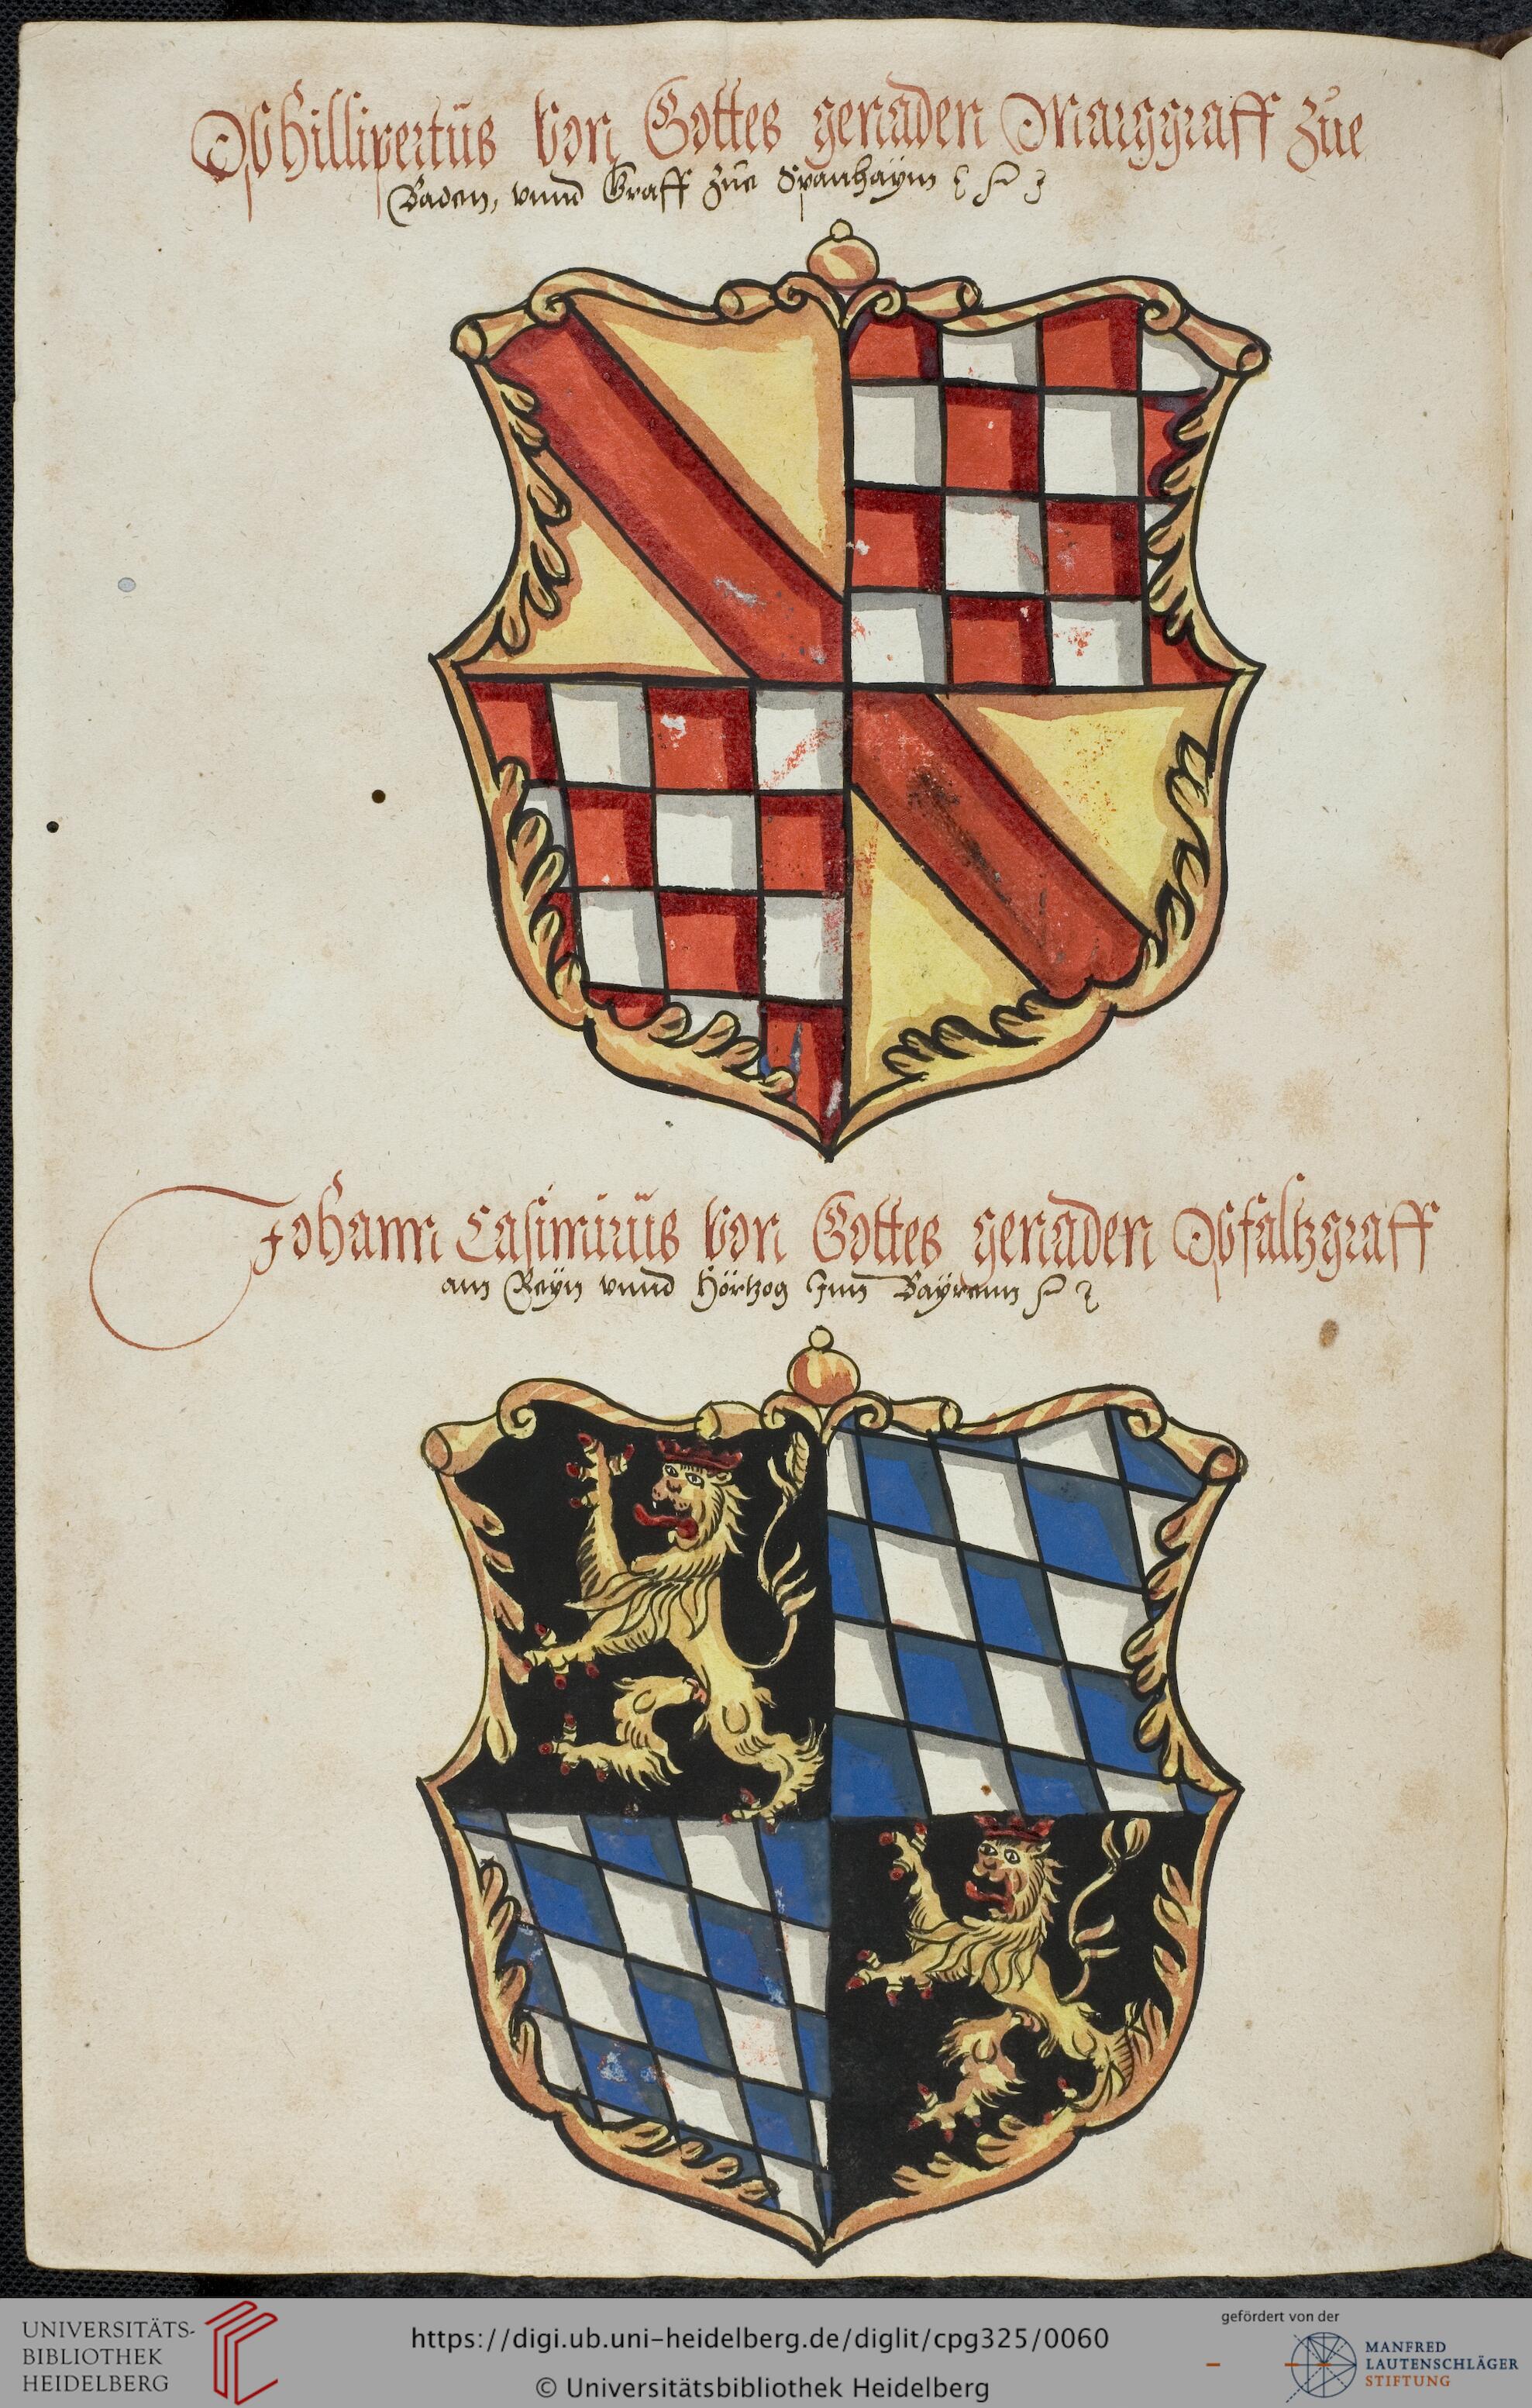 Phillipertüs Von Gottes genaden Marggraff Züe
Baden, vnnd Graff züe Spanhaÿm
Johann Casimirüs Von Gottes genaden Pfaltzgraff
am Reÿn vnnd Hörtzog Jnn Baÿrenn
UNIVERSITÄTS-
BIBLIOTHEK
HEIDELBERG
https://digi.ub.uni-heidelberg.de/diglit/cpg325/0060
© Universitätsbibliothek Heidelberg
gefördert von der
MANFRED
LAUTENSCHLÄGER
STIFTUNG